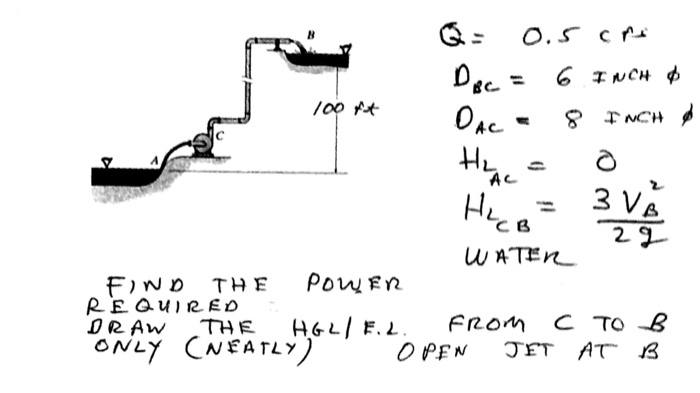 Q = 0.5 cfs
D_BC = 6 INCH φ
D_AC = 8 INCH φ
H_L AC = 0
H_L CB = 3 V_B² / 2g
WATER
B
100 ft
C
A
FIND THE POWER
REQUIRED
DRAW THE HGL/E.L. FROM C TO B
ONLY (NEATLY) OPEN JET AT B